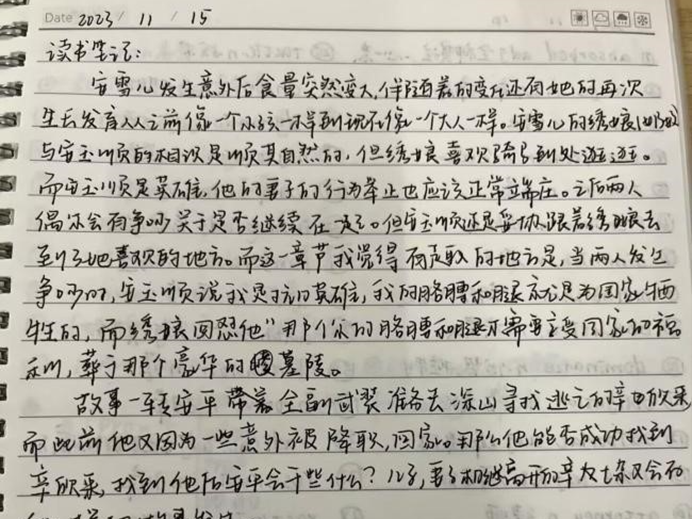 Date 2023 / 11 / 15
读书笔记:
安雪儿发生意外后食量突然变大,伴随着的变化还有她的再次
生长发育从之前像一个小孩一样到现在像一个大人一样。安雪儿的绣娘(奶奶)
与安玉顺的相识是顺其自然的,但绣娘喜欢骑马到处逛逛。
而安玉顺是英雄,他的妻子的行为举止也应该正常端庄。之后两人
偶尔会有争吵关于是否继续在一起。但安玉顺还是妥协跟着绣娘去
到了她喜欢的地方。而这一章节我觉得有趣的地方是,当两人发生
争吵时,安玉顺说我是抗日英雄,我的胳膊和腿就是为国家牺
牲的,而绣娘回怼他"那你的胳膊和腿才需要享受国家的福
利,葬于那个豪华的墓陵。
故事一转安平带着全副武装准备去深山寻找逃亡的辛欣来
而此前他又因为一些意外被降职,回家。那么他能否成功找到
辛欣来,找到他后安平会干些什么?儿子,妻子相继离开的辛七杂又会有